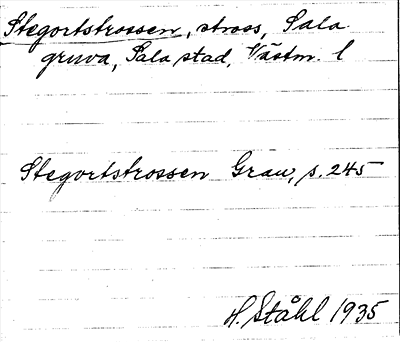 Stegortstrossen, stross, Sala
gruva, Sala stad, Västm. l
Stegortstrossen Grau, s. 245
H. Ståhl 1935